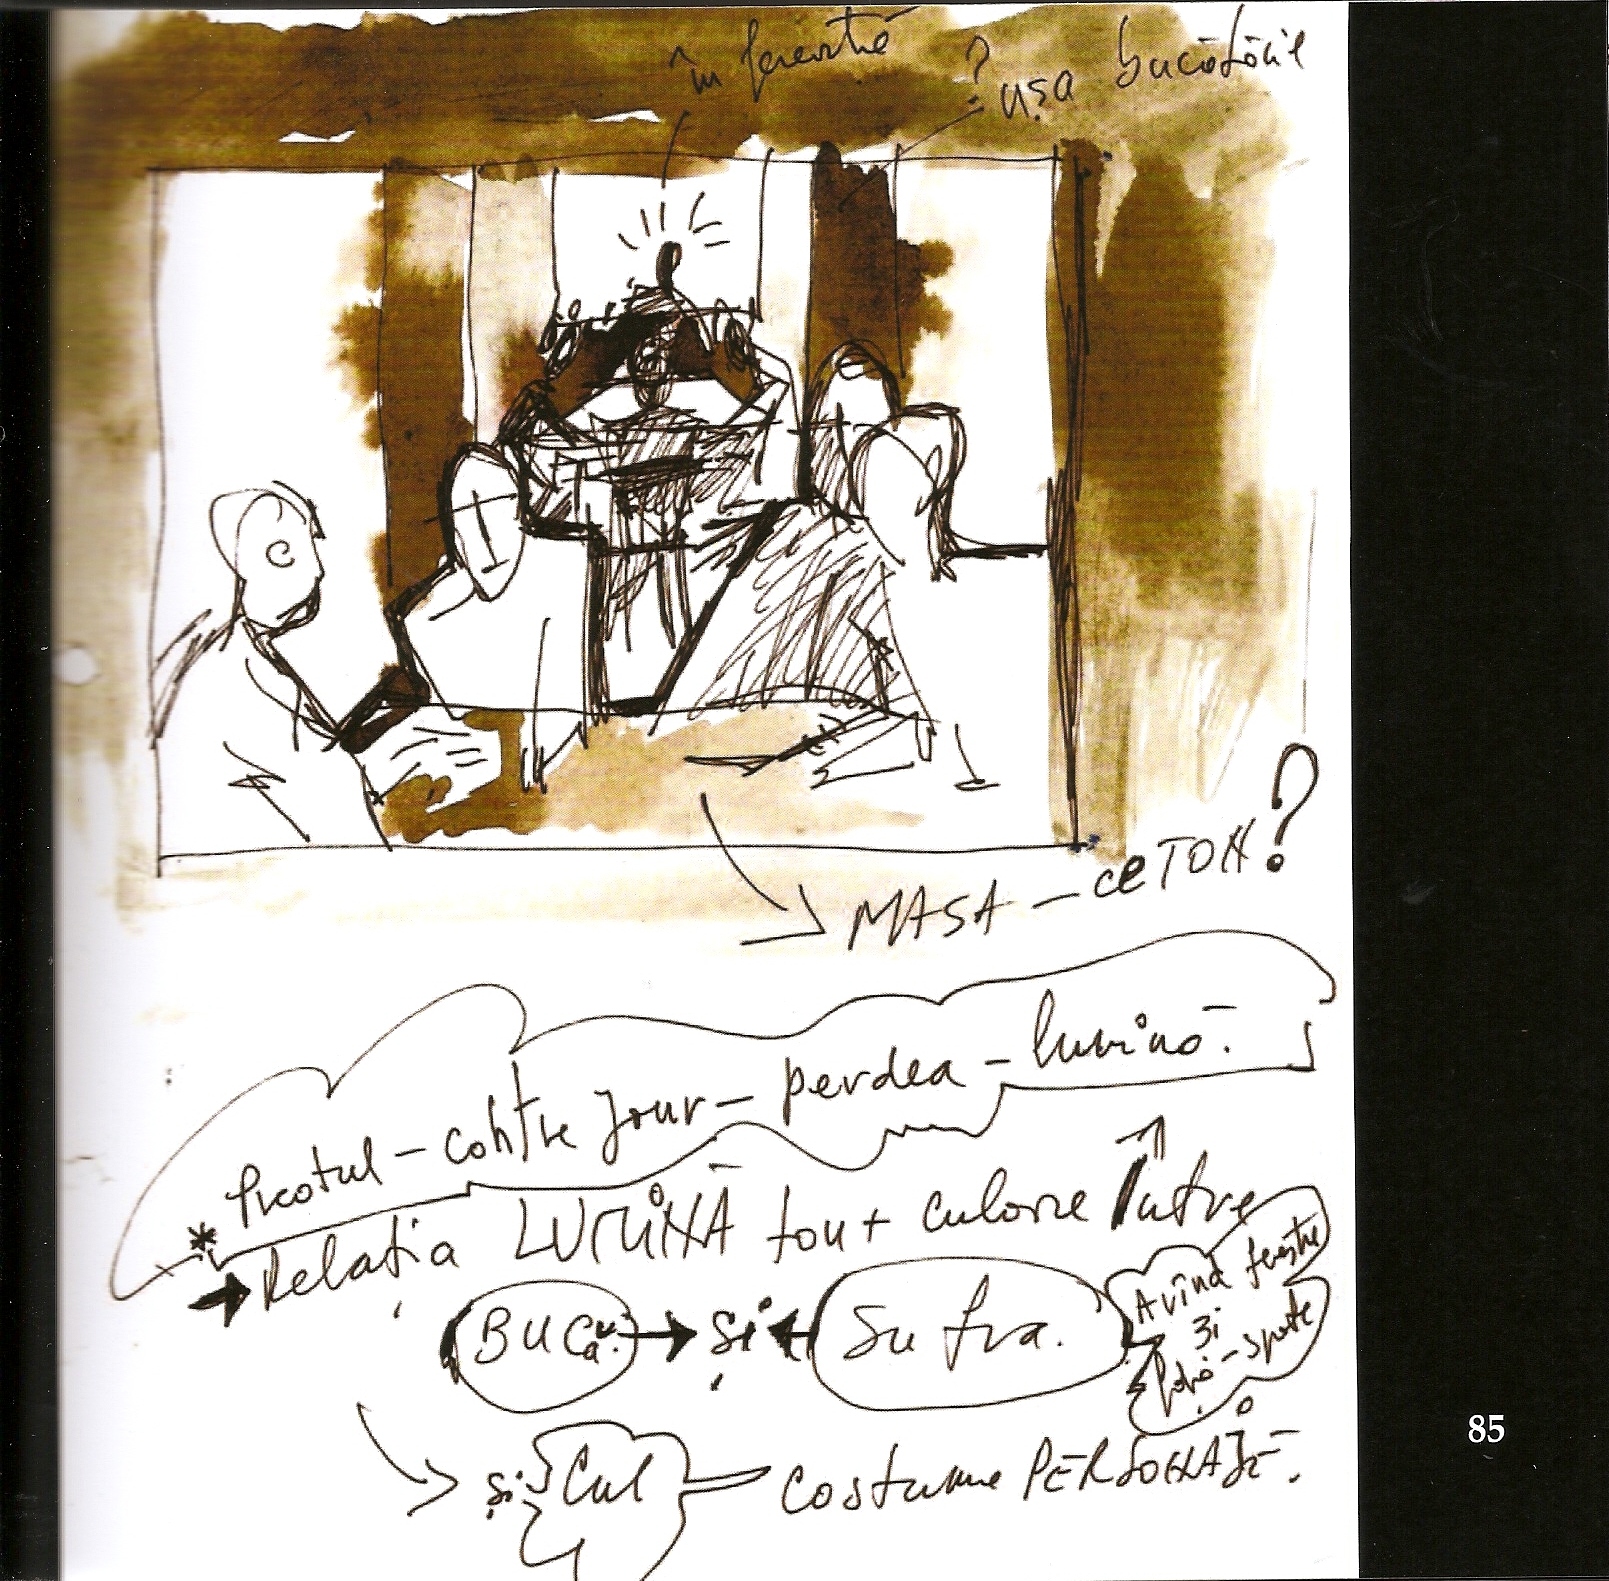 în ferestrē
? ușa bucătărie
MASA – ce TON?
* Pivotul – contre jour – perdea – lumină.
Relația LUMINĂ ton + culoare Între
BUCă. și Sufra.
Avînd ferestre
și
față-spate
și Cul costume PERSONAJE.
85